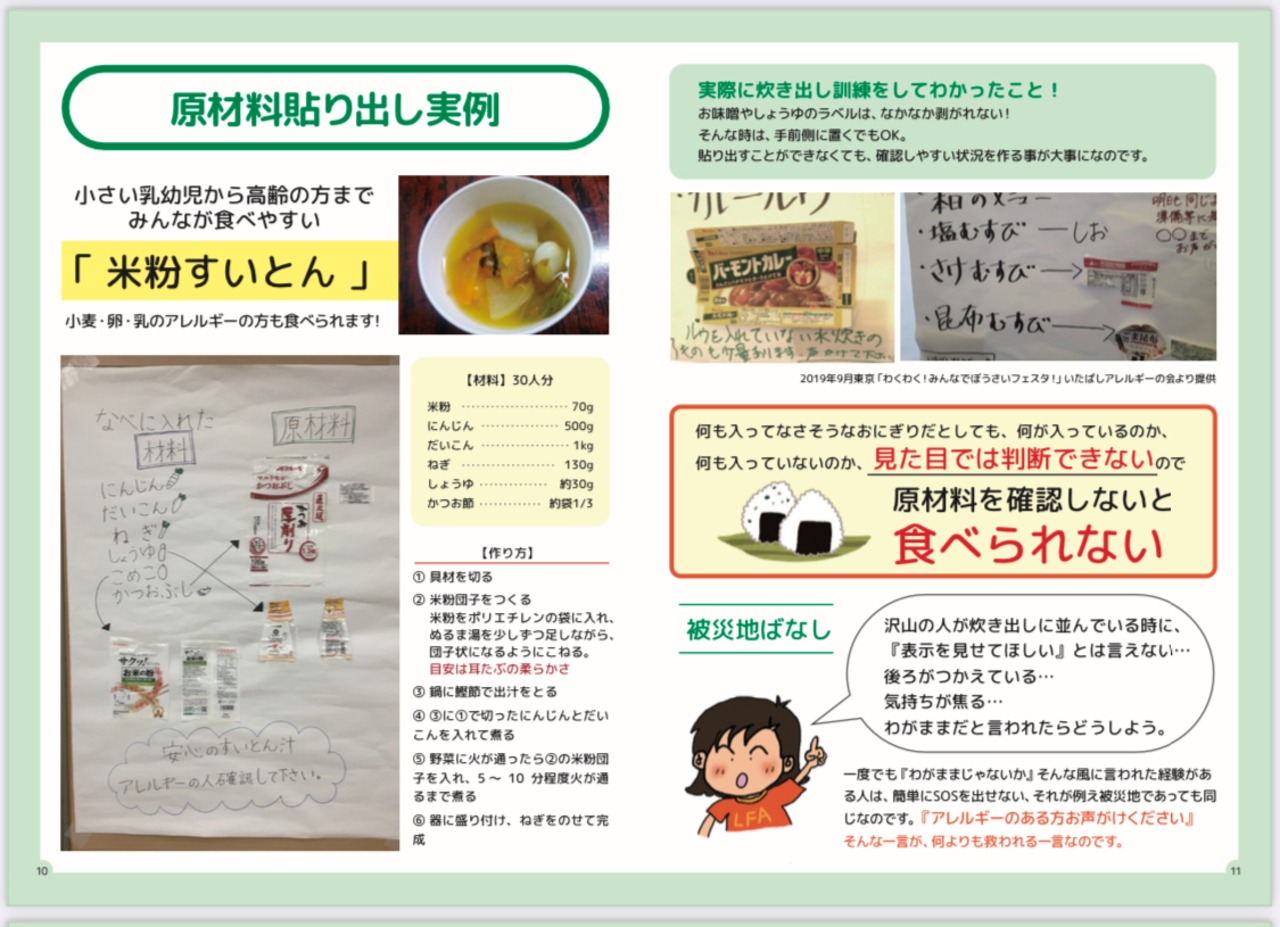 原材料貼り出し実例
小さい乳幼児から高齢の方まで
みんなが食べやすい
「 米粉すいとん 」
小麦・卵・乳のアレルギーの方も食べられます!
なべに入れた
材料
原材料
にんじん
だいこん
ねぎ
しょうゆ
こめこ
かつおぶし
かつお
厚削り
サクッ!
お米の粉
安心のすいとん汁
アレルギーの人確認して下さい。
【材料】30人分
米粉 ………………… 70g
にんじん …………… 500g
だいこん …………… 1kg
ねぎ ………………… 130g
しょうゆ …………… 約30g
かつお節 ………… 約袋1/3
【作り方】
① 具材を切る
② 米粉団子をつくる
米粉をポリエチレンの袋に入れ、
ぬるま湯を少しずつ足しながら、
団子状になるようにこねる。
目安は耳たぶの柔らかさ
③ 鍋に鰹節で出汁をとる
④ ③に①で切ったにんじんとだい
こんを入れて煮る
⑤ 野菜に火が通ったら②の米粉団
子を入れ、5 〜 10 分程度火が通
るまで煮る
⑥ 器に盛り付け、ねぎをのせて完
成
10
実際に炊き出し訓練をしてわかったこと!
お味噌やしょうゆのラベルは、なかなか剥がれない!
そんな時は、手前側に置くでもOK。
貼り出すことができなくても、確認しやすい状況を作る事が大事になのです。
・カレールウ
バーモントカレー
ルウを入れていない水炊きの
ものも少量あります。声かけて下さい
・塩むすび — しお
・さけむすび →
・昆布むすび →
明日も同じよ
準備等に
○○まで
お声が
2019年9月東京「わくわく!みんなでぼうさいフェスタ!」いたばしアレルギーの会より提供
何も入ってなさそうなおにぎりだとしても、何が入っているのか、
何も入っていないのか、見た目では判断できないので
原材料を確認しないと
食べられない
被災地ばなし
沢山の人が炊き出しに並んでいる時に、
『表示を見せてほしい』とは言えない…
後ろがつかえている…
気持ちが焦る…
わがままだと言われたらどうしよう。
LFA
一度でも『わがままじゃないか』そんな風に言われた経験があ
る人は、簡単にSOSを出せない、それが例え被災地であっても同
じなのです。『アレルギーのある方お声がけください』
そんな一言が、何よりも救われる一言なのです。
11